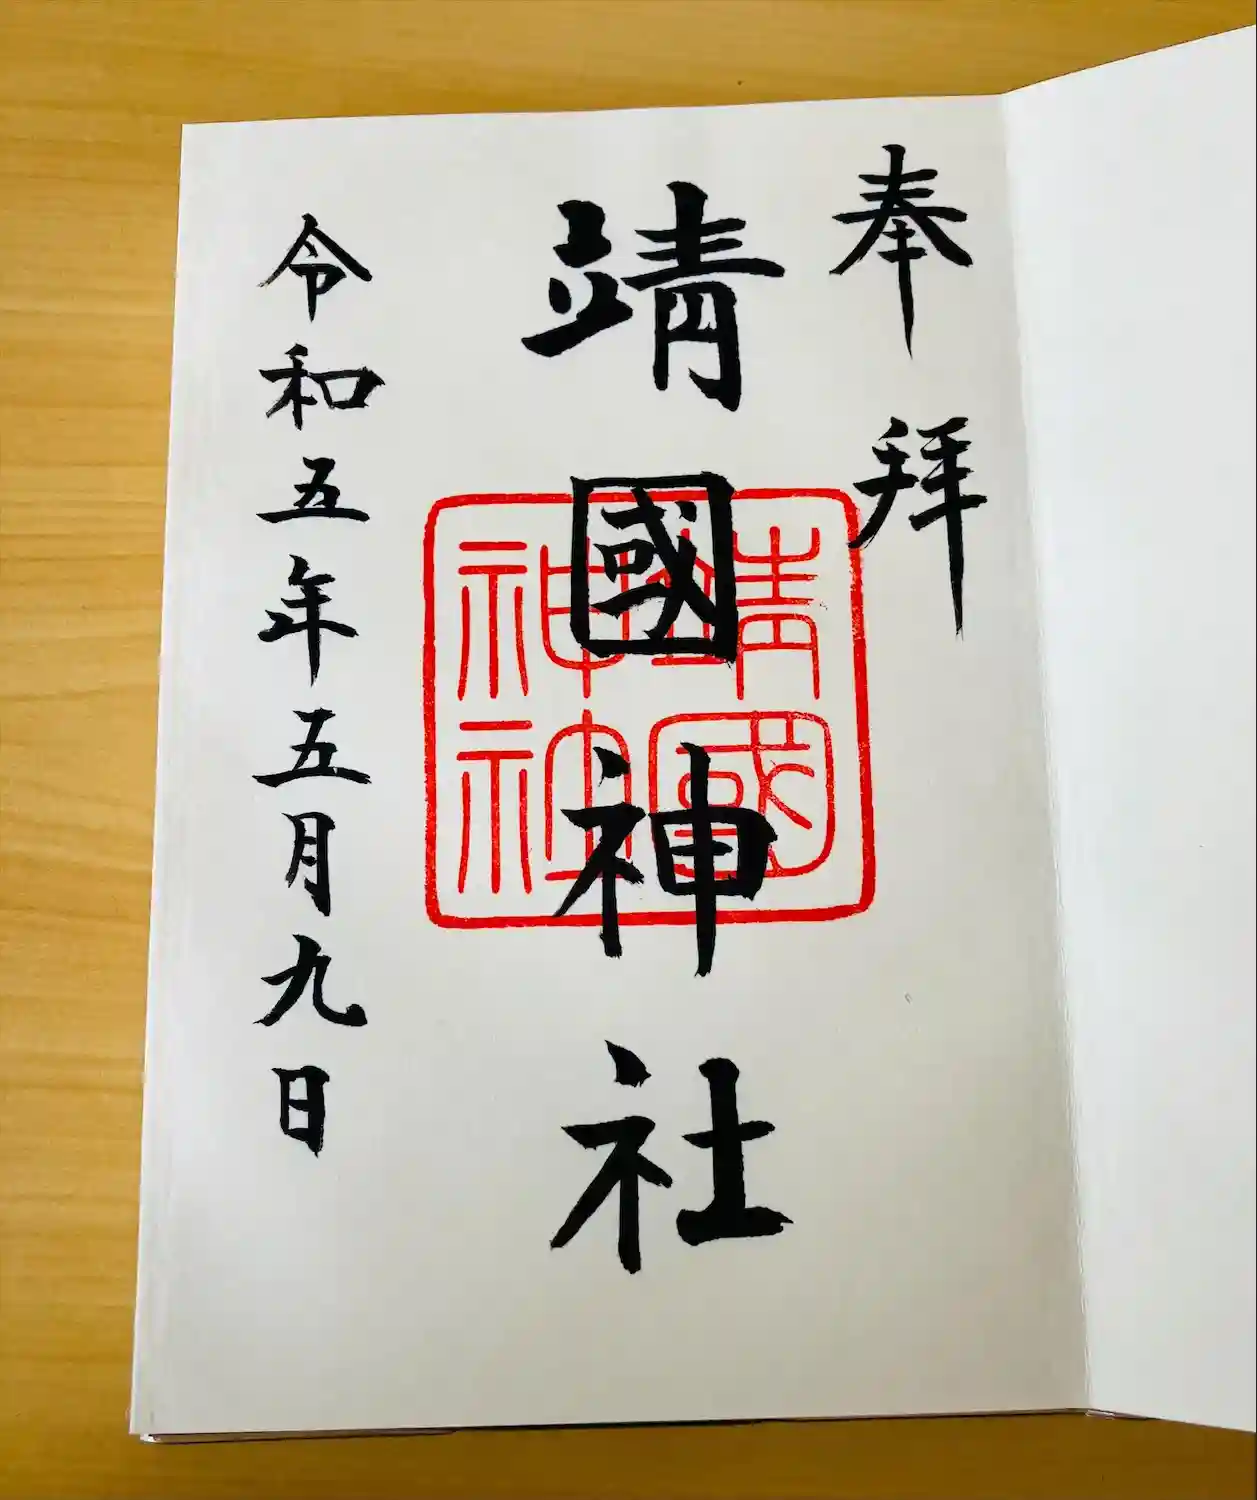 奉拜
靖國神社
靖國
神社
令和五年五月九日